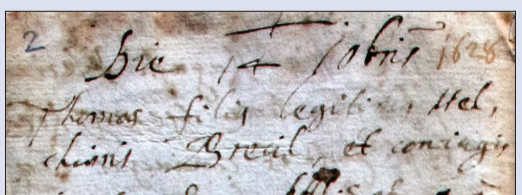 2 Die 14 10bris 1628
Thomas filius legitimus Mel,
chioris Breül, et coniugis